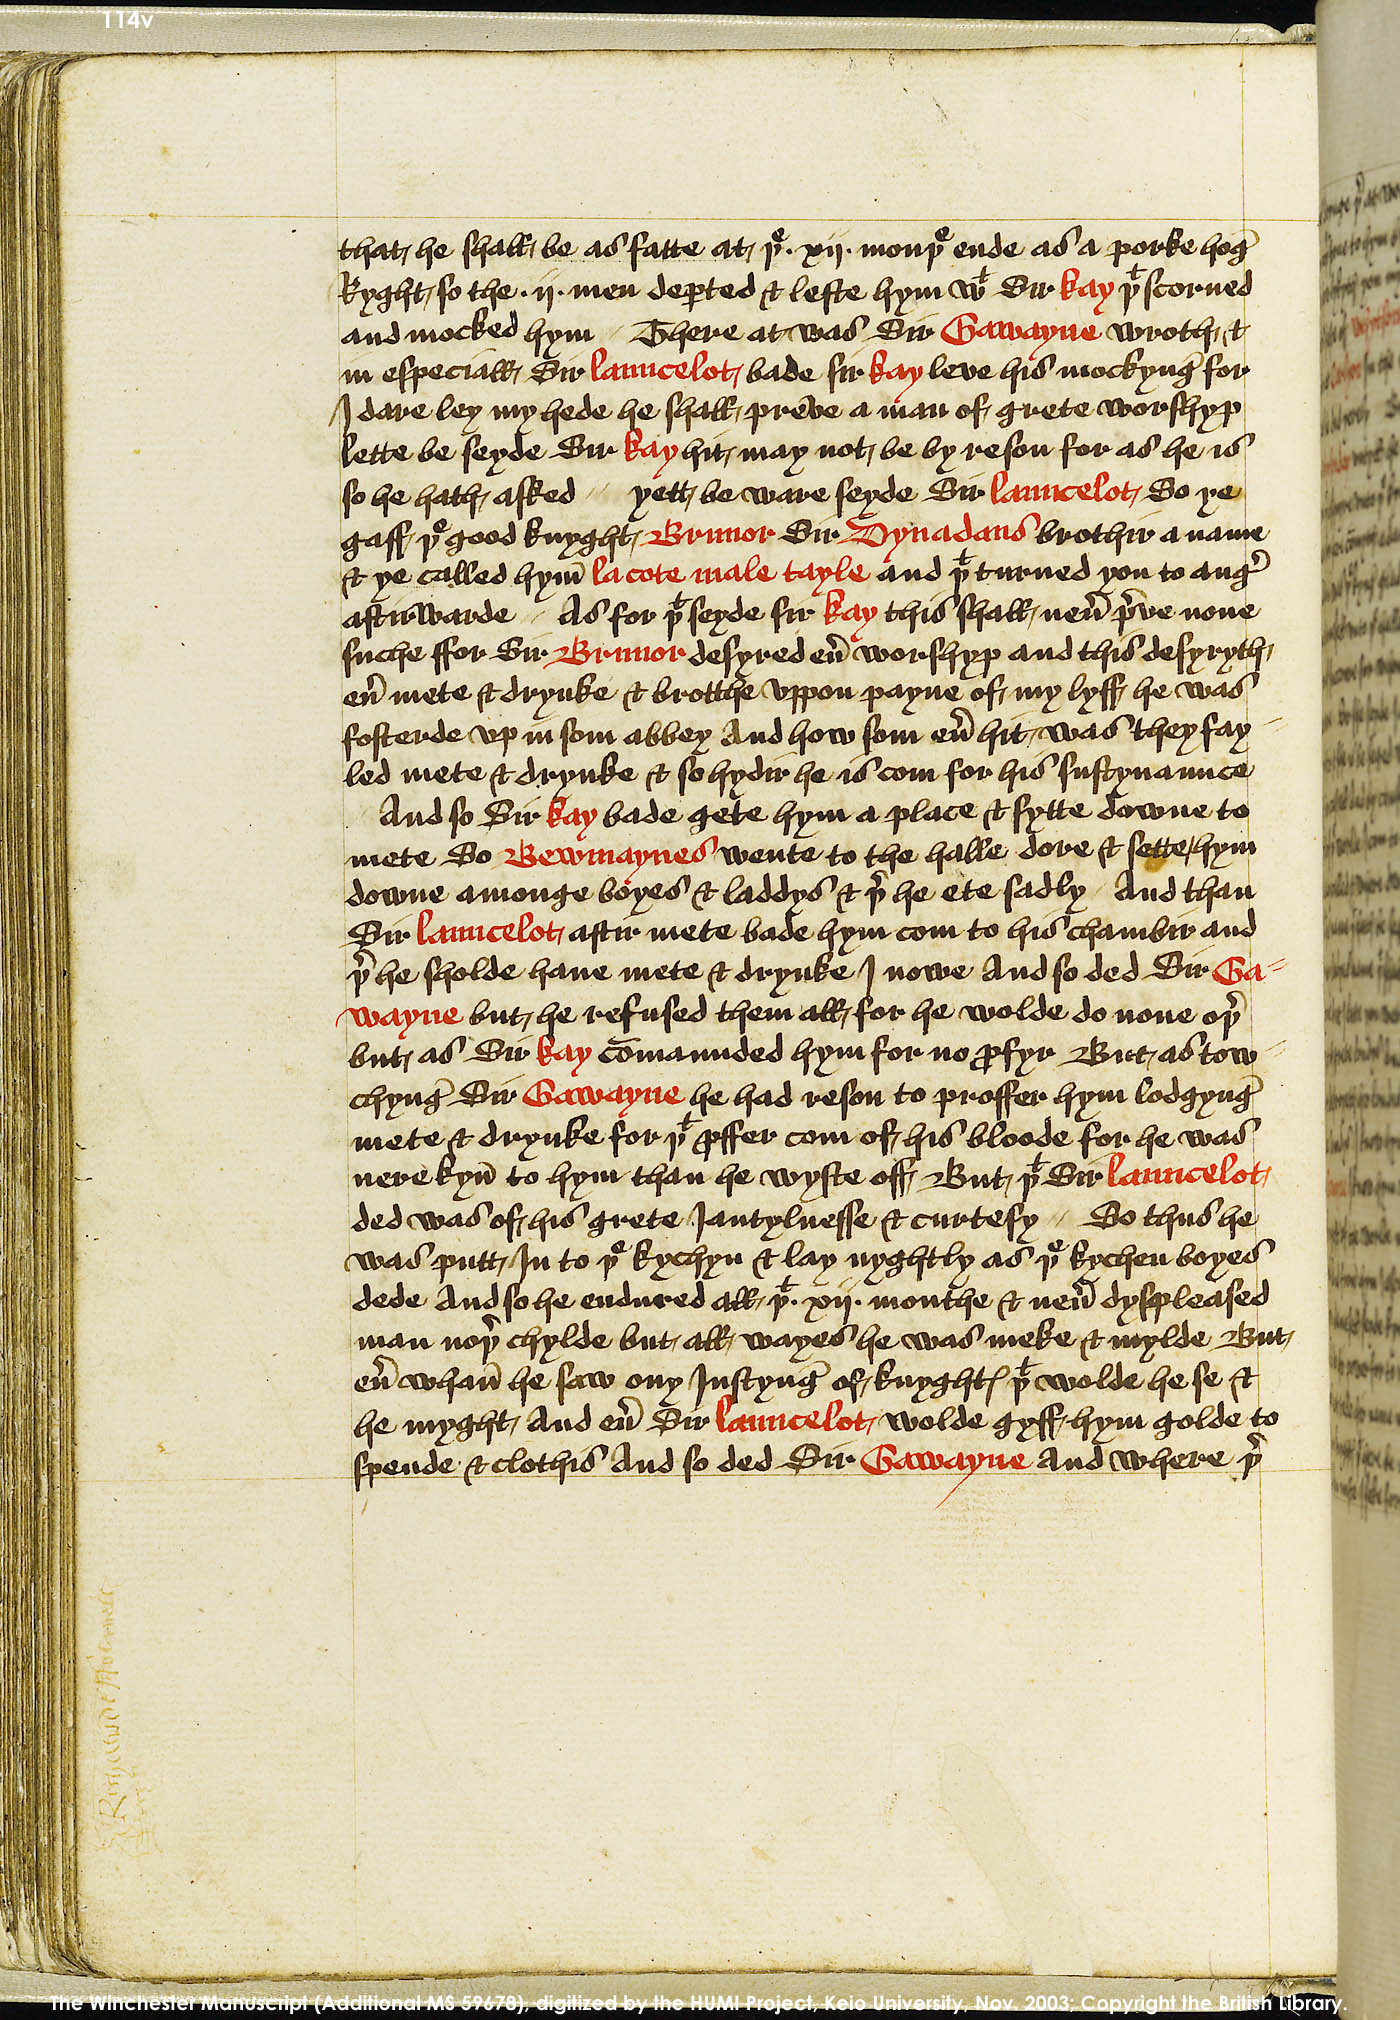 114v
that he shall be as fatte at þe .xij. monþe ende as a porke hog
Ryght so the .ij. men deꝑted & lefte hym wt Sir kay þt scorned
and mocked hym // There at was Sir Gawayne wroth &
in especiall Sir launcelot bade sir kay leve his mockyng for
I dare ley my hede he shall preve a man of grete worshyp
lette be seyde Sir kay hit may not be by reson for as he is
so he hath asked // yett be ware seyde Sir launcelot So ye
gaff þe good knyght Brunor Sir Dynadans brothir a name
& ye called hym̄ la cote male tayle and þt turned you to angˀ
aftirwarde // As for þt seyde sir kay this shall neuˀ pˀve none
suche ffor Sir Brunor desyred euˀ worshyp and this desyryth
euˀ mete & drynke & brotthe vppon payne of my lyff he was
fosterde vp in som abbey And how som euˀ hit was they fay
led mete & drynke & so hydir he is com for his sustynaunce
// And so Sir kay bade gete hym a place & sytte downe to
mete So Bewmaynes wente to the halle dore & sette hym
downe amonge boyes & laddys & þˀ he ete sadly / And than
Sir launcelot aftir mete bade hym com to his chambir and
þˀ he sholde haue mete & drynke I nowe And so ded Sir Ga=
wayne but he refused them all for he wolde do none oþˀ
but as Sir kay cōmaunded hym for no ꝓfyr But as tow
chyng Sir Gawayne he had reson to proffer hym lodgyng
mete & drynke for þt ꝓffer com of his bloode for he was
nere kyn̄ to hym than he wyste off But þt Sir launcelot
ded was of his grete Jantylnesse & curtesy // So thus he
was putt In to þe kychyn & lay nyghtly as þe kychen boyes
dede And so he endured all þt .xij. monthe & neuˀ dyspleased
man noþˀ chylde but all wayes he was meke & mylde But
euˀ whan̄ he saw ony Justyng of knyghtꝭ þt wolde he se &
he myght And euˀ Sir launcelot wolde gyff hym golde to
spende & clothis And so ded Sir Gawayne And where þˀ
The Winchester Manuscript (Additional MS 59678), digitized by the HUMI Project, Keio University, Nov. 2003; Copyright the British Library.